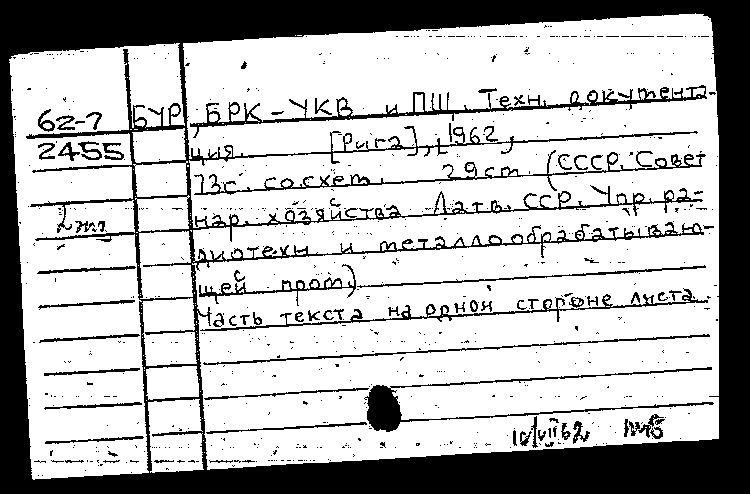 62-7 БУР, БРК-УКВ и ПШ. Техн. документа-
2455 ция. [Рига], 1962,
73с. со схем. 29см (СССР. Совет
2 экз нар. хозяйства Латв. ССР. Упр. ра-
диотехн и металлообрабатываю-
щей пром.)
Часть текста на одной стороне листа.
10/VII 62